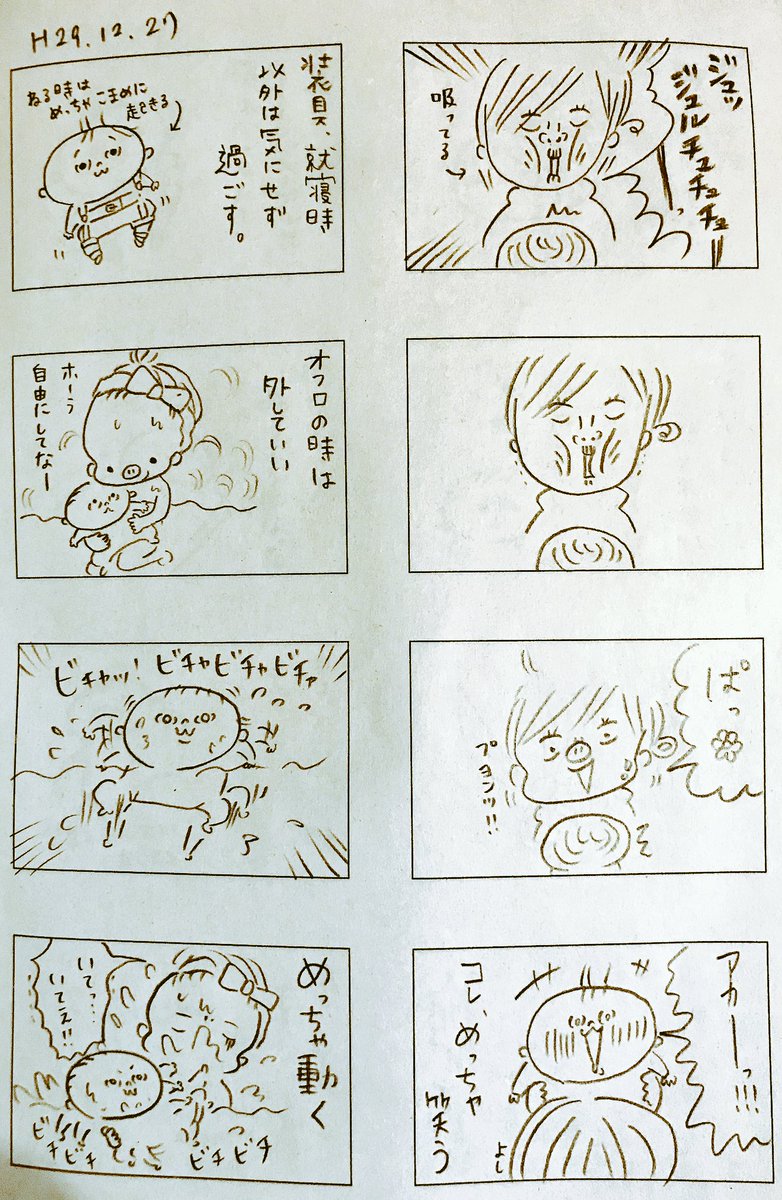 H29.12.27
ジュッ
ジュルチュチュチュー
吸ってる
ぱっ
プヨンッ!!
アカーっ!!!
コレ、めっちゃ
笑う
よし
装具、就寝時
以外は気にせず
過ごす。
ねる時は
めっちゃこまめに
起きる
オフロの時は
外していい
ホーラ
自由にしてなー
ビチャッ! ビチャビチャビチャ
めっちゃ動く
いてっ…
いてえ!!
ビチビチ
ビチビチ